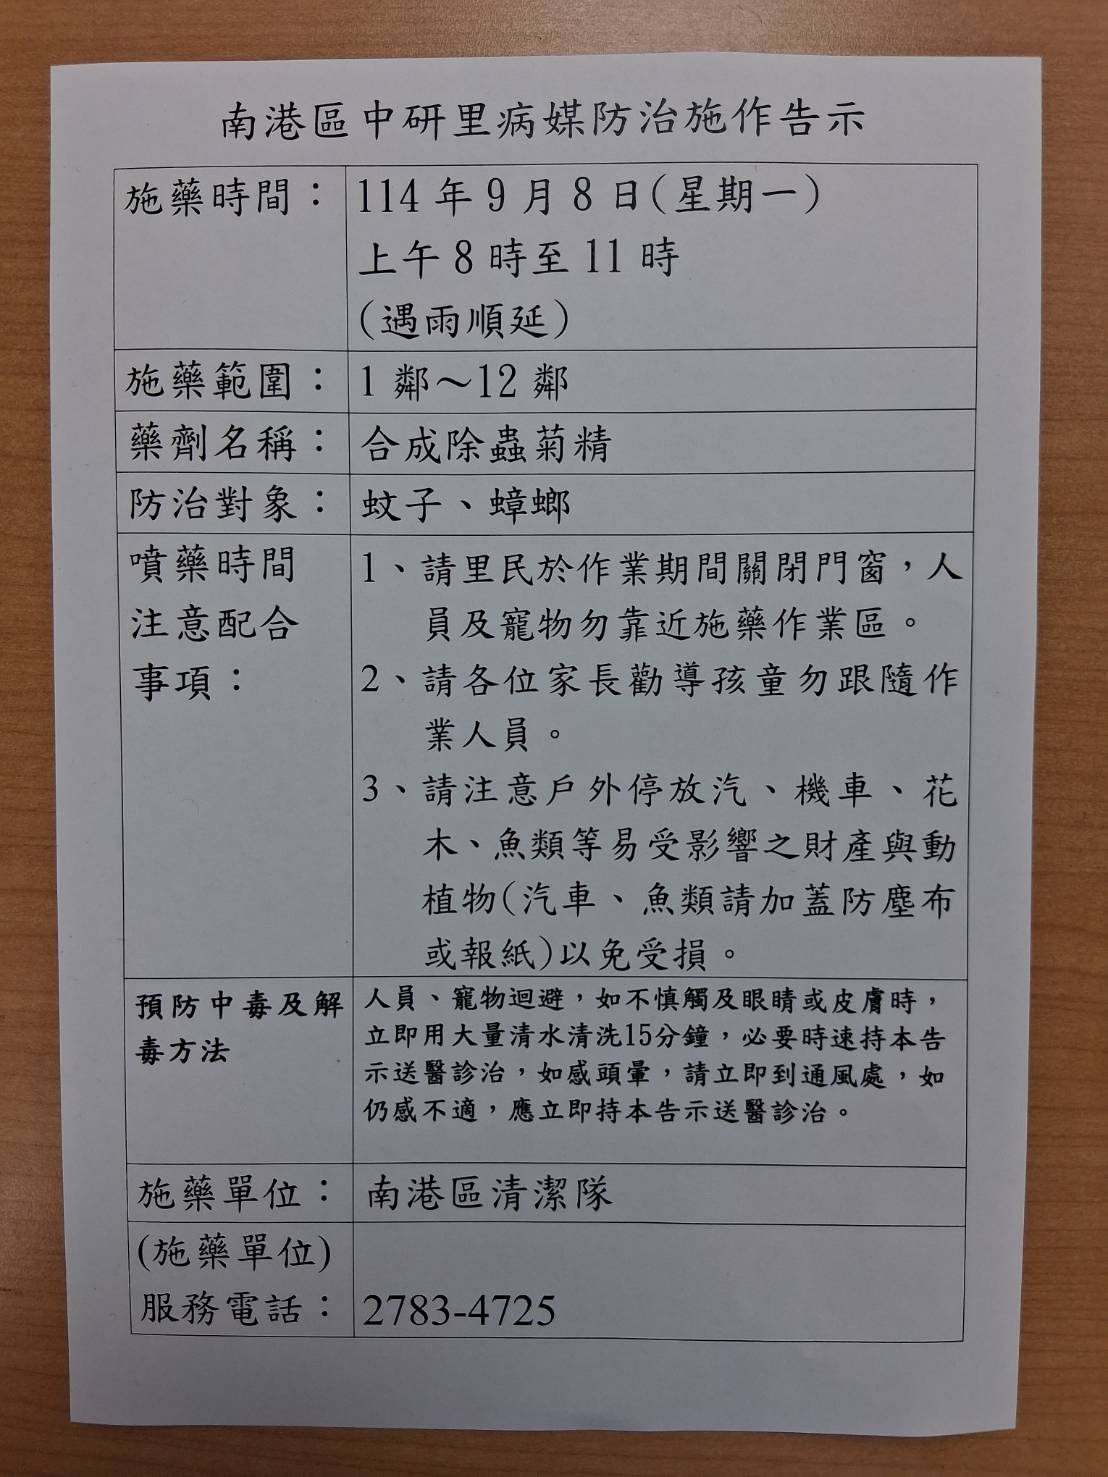 南港區中研里病媒防治施作告示
施藥時間：
114 年 9 月 8 日(星期一)
上午 8 時至 11 時
(遇雨順延)
施藥範圍：
1 鄰～12 鄰
藥劑名稱：
合成除蟲菊精
防治對象：
蚊子、蟑螂
噴藥時間
注意配合
事項：
1、請里民於作業期間關閉門窗，人
員及寵物勿靠近施藥作業區。
2、請各位家長勸導孩童勿跟隨作
業人員。
3、請注意戶外停放汽、機車、花
木、魚類等易受影響之財產與動
植物(汽車、魚類請加蓋防塵布
或報紙)以免受損。
預防中毒及解
毒方法
人員、寵物迴避，如不慎觸及眼睛或皮膚時，
立即用大量清水清洗15分鐘，必要時速持本告
示送醫診治，如感頭暈，請立即到通風處，如
仍感不適，應立即持本告示送醫診治。
施藥單位：
南港區清潔隊
(施藥單位)
服務電話：
2783-4725